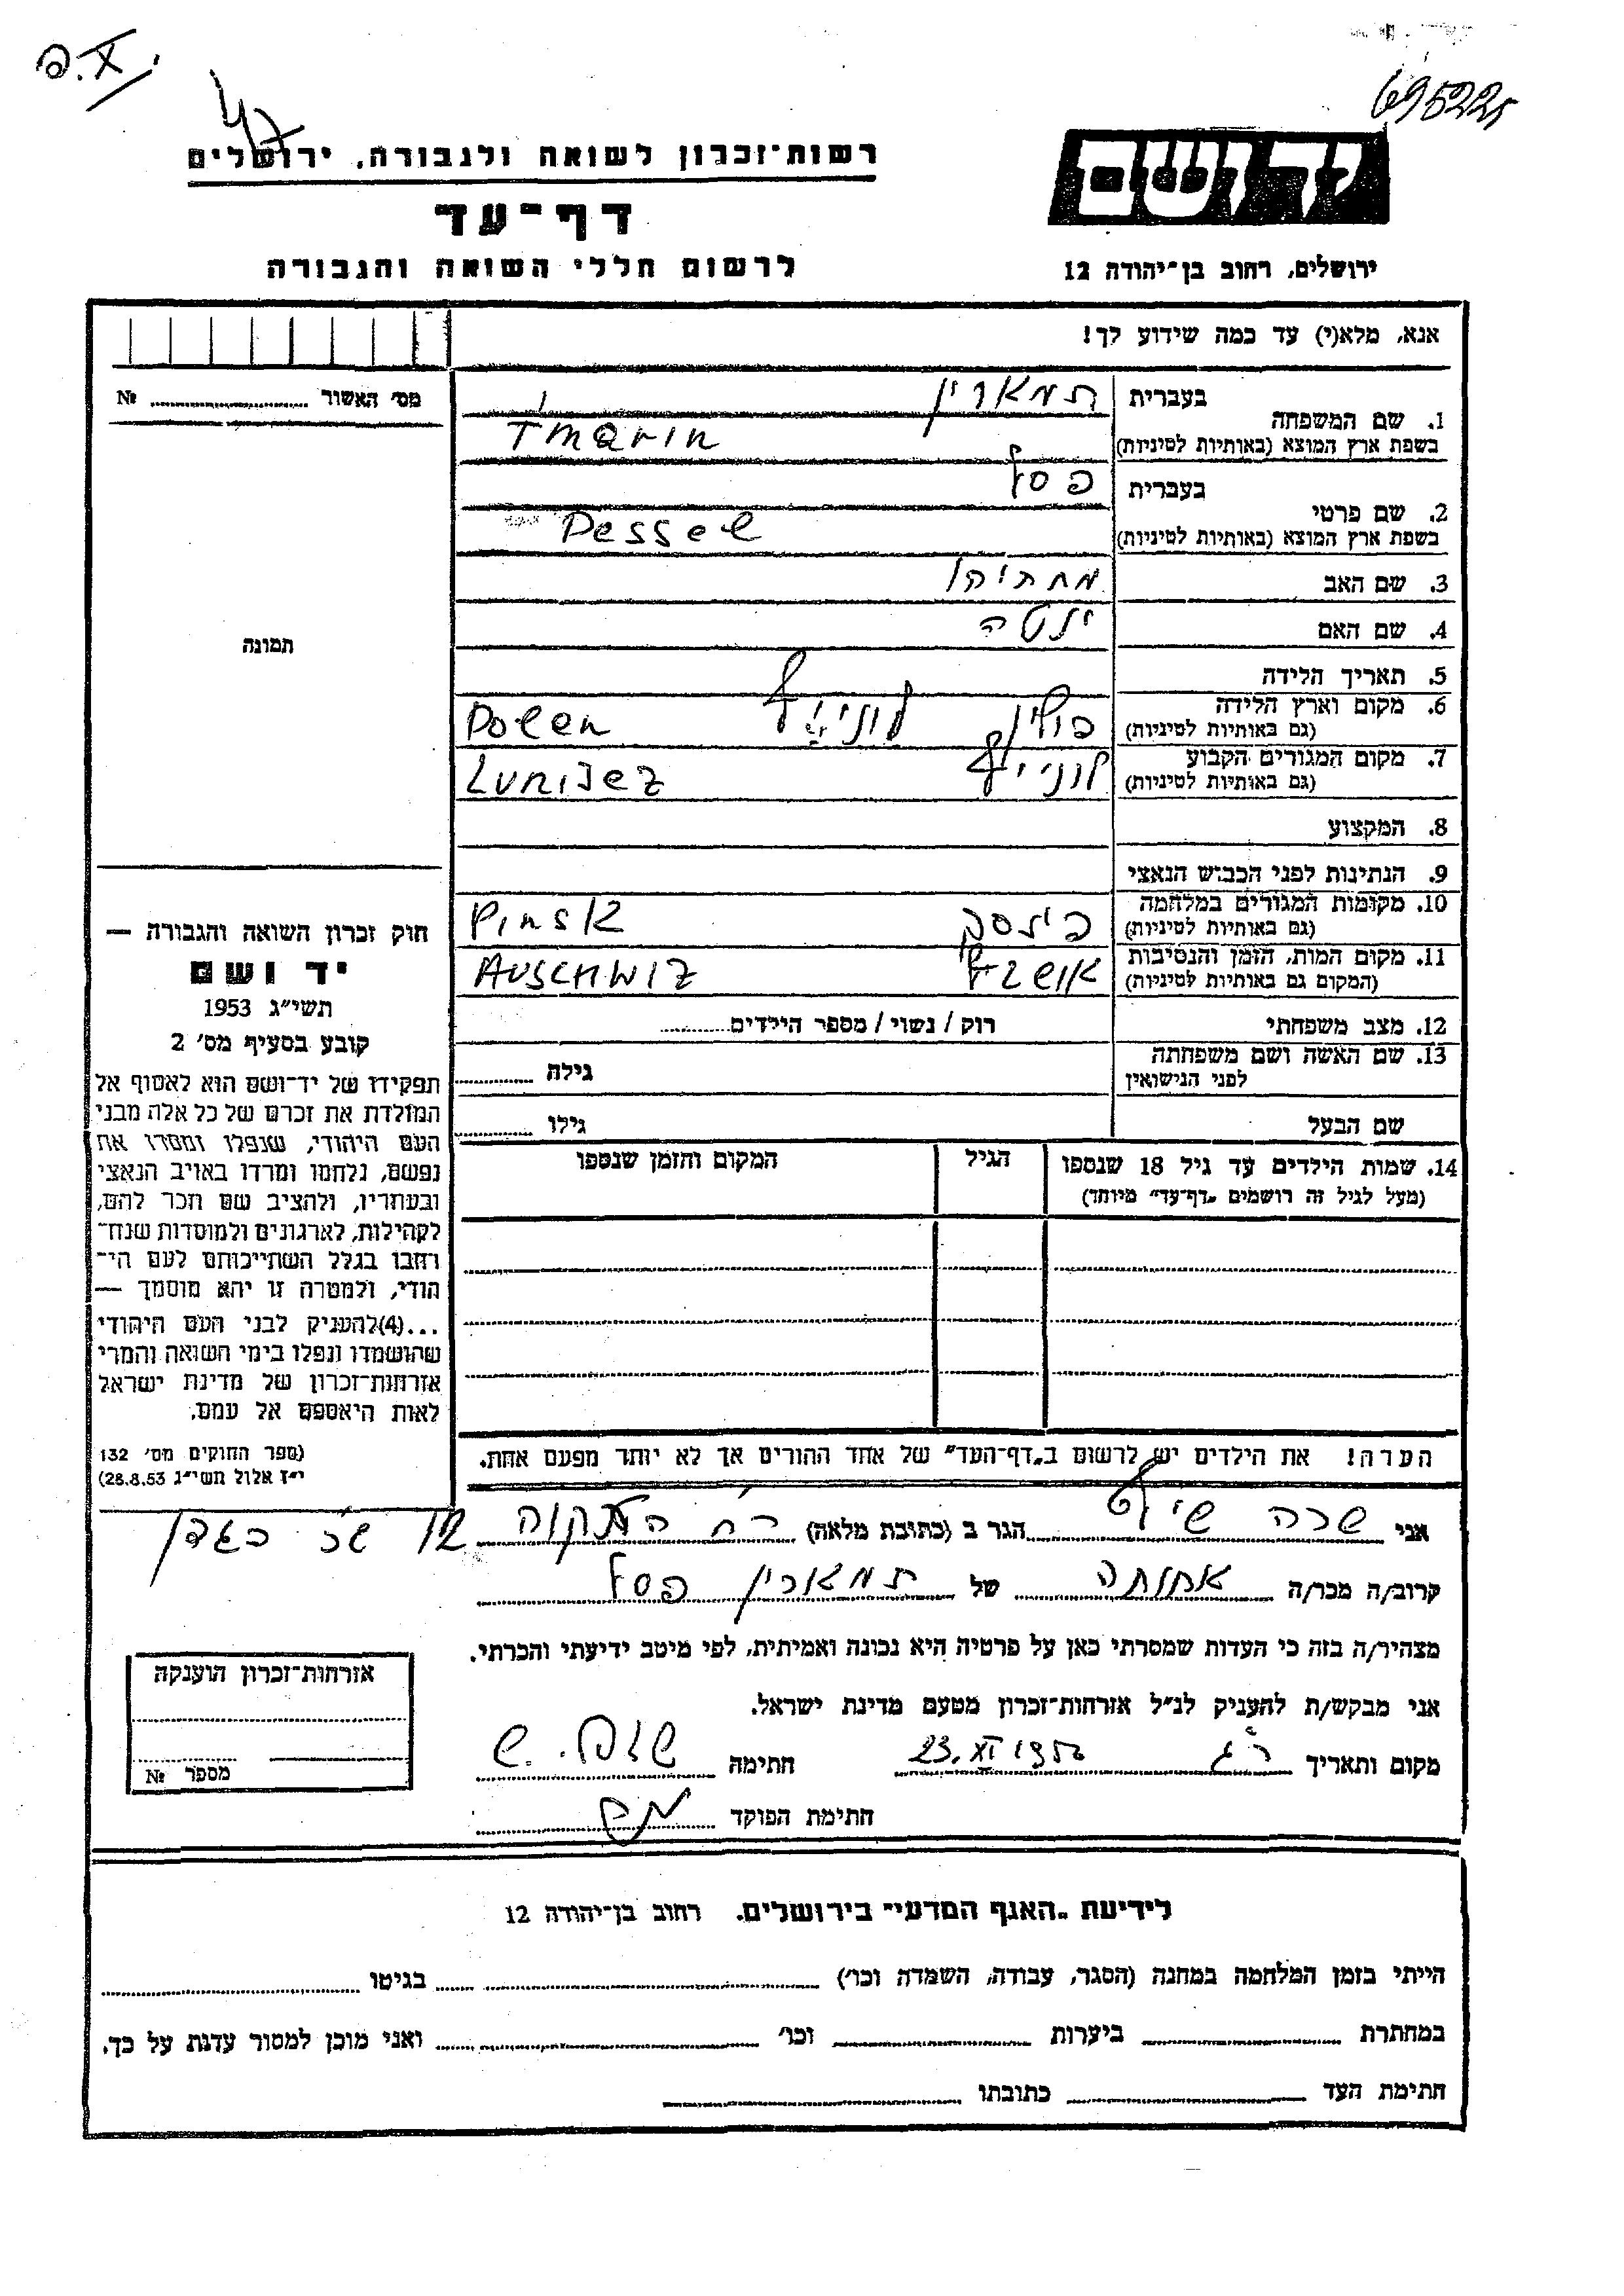 695225
רשות־זכרון לשואה ולגבורה, ירושלים
יד ושם
דף־עד
לרשום חללי השואה והגבורה
ירושלים, רחוב בן־יהודה 12
אנא, מלא(י) עד כמה שידוע לך!
מס׳ האשור № ............
בעברית תמארין
1. שם המשפחה
בשפת ארץ המוצא (באותיות לטיניות) Tmarin
בעברית פסל
2. שם פרטי
בשפת ארץ המוצא (באותיות לטיניות) Pessel
3. שם האב מתתיהו
4. שם האם ילטה
תמונה
5. תאריך הלידה
6. מקום וארץ הלידה
(גם באותיות לטיניות) פולין Polen
7. מקום המגורים הקבוע
(גם באותיות לטיניות) Lunijez
8. המקצוע
9. הנתינות לפני הכבוש הנאצי
10. מקומות המגורים במלחמה
(גם באותיות לטיניות) פינסק Pinsk
11. מקום המות, הזמן והנסיבות
(המקום גם באותיות לטיניות) Auschwiz
12. מצב משפחתי רוק / נשוי / מספר הילדים........
13. שם האשה ושם משפחתה
לפני הנישואין גילה ........
שם הבעל גילו ........
14. שמות הילדים עד גיל 18 שנספו
(מעל לגיל זה רושמים „דף־עד״ מיוחד)
הגיל
המקום והזמן שנספו
הערה! את הילדים יש לרשום ב„דף־העד״ של אחד ההורים אך לא יותר מפעם אחת.
חוק זכרון השואה והגבורה —
יד ושם
תשי״ג 1953
קובע בסעיף מס׳ 2
תפקידו של יד־ושם הוא לאסוף אל
המולדת את זכרם של כל אלה מבני
העם היהודי, שנפלו ומסרו את
נפשם, נלחמו ומרדו באויב הנאצי
ובעוזריו, ולהציב שם וזכר להם,
לקהילות, לארגונים ולמוסדות שנח־
רבו בגלל השתייכותם לעם הי־
הודי, ולמטרה זו יהא מוסמך —
...(4)להעניק לבני העם היהודי
שהושמדו ונפלו בימי השואה והמרי
אזרחות־זכרון של מדינת ישראל
לאות היאספם אל עמם.
(ספר החוקים מס׳ 132
י״ז אלול תשי״ג 28.8.53)
אני שרה הגר ב (כתובת מלאה) רח התקוה 12
קרוב/ה מכר/ה אחותה של תמארין פסל
מצהיר/ה בזה כי העדות שמסרתי כאן על פרטיה היא נכונה ואמיתית, לפי מיטב ידיעתי והכרתי.
אני מבקש/ת להעניק לנ״ל אזרחות־זכרון מטעם מדינת ישראל.
מקום ותאריך ר״ג 23.XI חתימה
חתימת הפוקד
אזרחות־זכרון הוענקה
מספר №
לידיעת „האגף המדעי״ בירושלים. רחוב בן־יהודה 12
הייתי בזמן המלחמה במחנה (הסגר, עבודה, השמדה וכו׳) בגיטו
במחתרת ביערות וכו׳ ואני מוכן למסור עדות על כך.
חתימת העד כתובתו